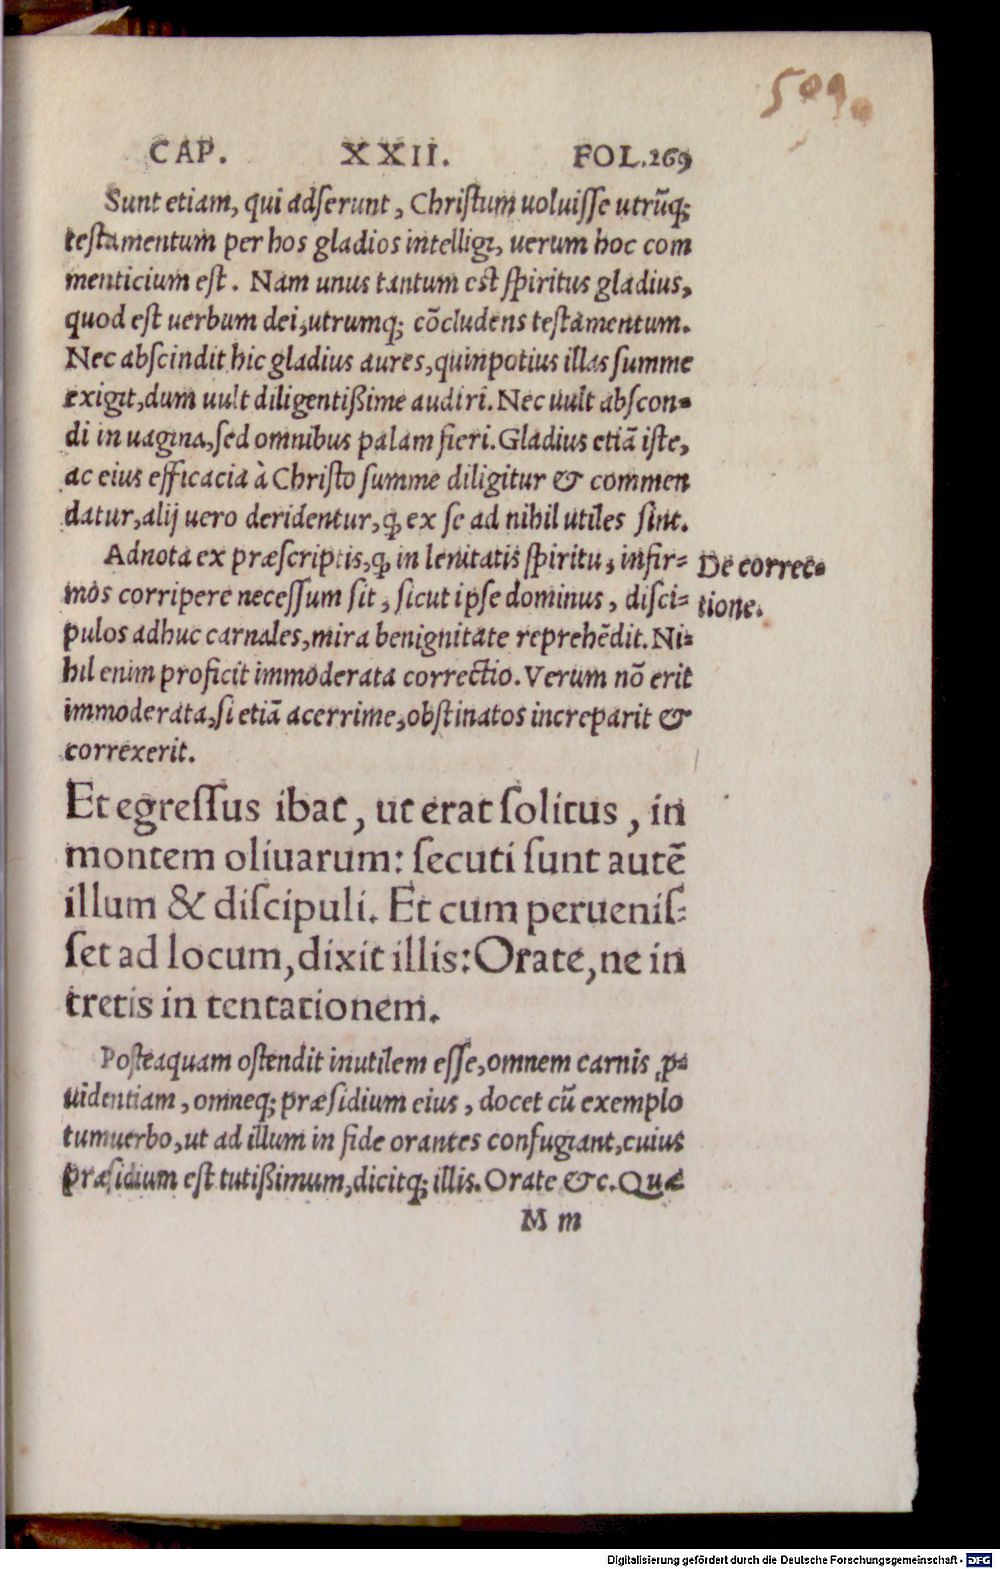 509
CAP. XXII. FOL.269
Sunt etiam, qui adserunt, Christum uoluisse utrũq;
testamentum per hos gladios intelligi, uerum hoc com
menticium est. Nam unus tantum est spiritus gladius,
quod est uerbum dei,utrumq; cõcludens testamentum.
Nec abscindit hic gladius aures,quinpotius illas summe
exigit,dum uult diligentißime audiri. Nec uult abscon-
di in uagina,sed omnibus palam fieri. Gladius etiã iste,
ac eius efficacia à Christo summe diligitur & commen
datur,alij uero deridentur,ꝙ ex se ad nihil utiles sint.
Adnota ex præscriptis,ꝙ in lenitatis spiritu, infir-
mos corripere necessum sit, sicut ipse dominus, disci-
pulos adhuc carnales,mira benignitate reprehẽdit. Ni-
hil enim proficit immoderata correctio. Verum nõ erit
immoderata,si etiã acerrime,obstinatos increparit &
correxerit.
De correc-
tione.
Et egressus ibat, ut erat solitus, in
montem oliuarum: secuti sunt autẽ
illum & discipuli. Et cum peruenis-
set ad locum,dixit illis: Orate,ne in
tretis in tentationem.
Posteaquam ostendit inutilem esse,omnem carnis ꝓ-
uidentiam, omneq; præsidium eius, docet cũ exemplo
tumuerbo,ut ad illum in fide orantes confugiant,cuius
præsidium est tutißimum,dicitq; illis. Orate &c. Quæ
M m
Digitalisierung gefördert durch die Deutsche Forschungsgemeinschaft - DFG